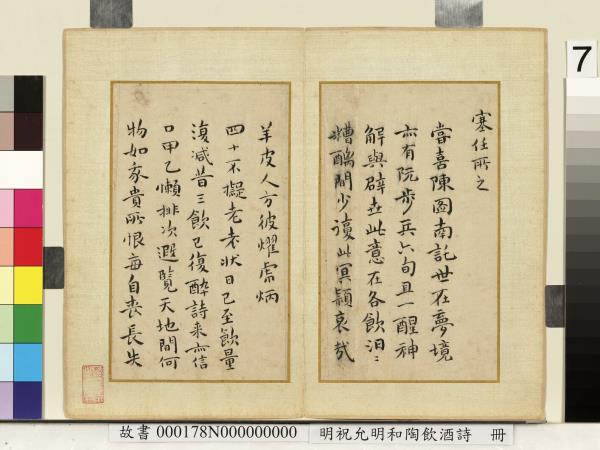 塞任所之
嘗喜陳圖南託世在夢境
亦有阮步兵六旬且一醒神
解與辟世此意在各飲汩〻
糟醨間少復此冥穎哀哉
羊皮人方彼燿虎炳
四十不擬老衰狀日已至飲量
復减昔三飲已復醉詩來亦信
口甲乙懶排次遐覽天地間何
物如我貴所恨每自喪長失
7
故書 000178N000000000 明祝允明和陶飲酒詩 冊